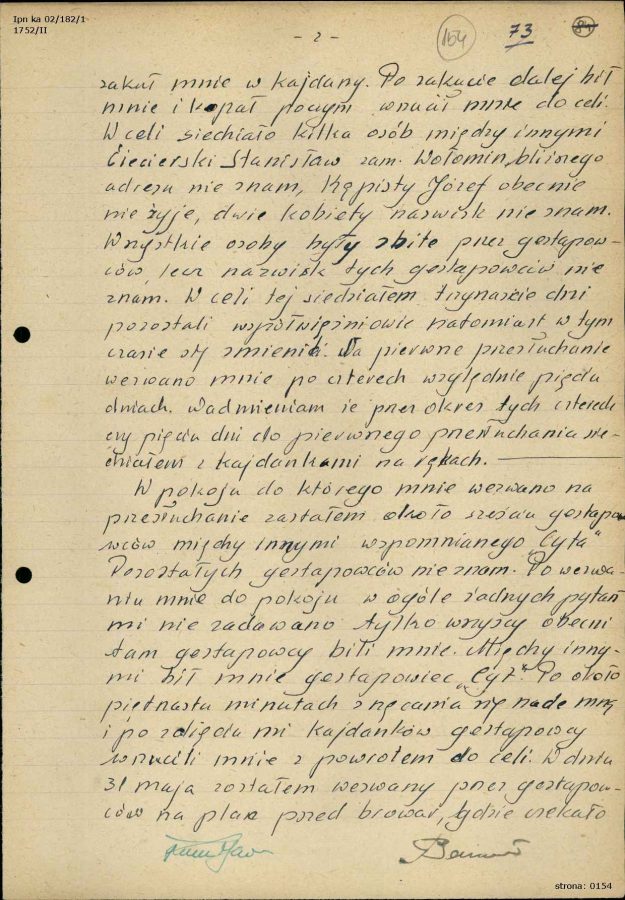 Ipn ka 02/182/1
1752/II
- 2 -
154
73
84
zakuł mnie w kajdany. Po zakucie dalej bił
mnie i kopał poczym wrzucił mnie do celi.
W celi siedziało kilka osób między innymi
Ciecierski Stanisław zam. Wołomin, bliższego
adresu nie znam, Kępisty Józef obecnie
nie żyje, dwie kobiety nazwisk nie znam.
Wszystkie osoby były zbite przez gestapow-
ców, lecz nazwisk tych gestapowców nie
znam. W celi tej siedziałem trzynaście dni
pozostali współwięźniowie natomiast w tym
czasie się zmienili. Na pierwsze przesłuchanie
wezwano mnie po czterech względnie pięciu
dniach. Nadmieniam że przez okres tych czterech
czy pięciu dni do pierwszego przesłuchania sie-
działem z kajdankami na rękach.
W pokoju do którego mnie wezwano na
przesłuchanie zastałem około sześciu gestapo
wców między innymi wspomnianego „Cyta"
Pozostałych gestapowców nie znam. Po wezwa-
niu mnie do pokoju w ogóle żadnych pytań
mi nie zadawano tylko wszyscy obecni
tam gestapowcy bili mnie. Między inny-
mi bił mnie gestapowiec „Cyt". Po około
piętnastu minutach znęcania się nade mną
i po zdjęciu mi kajdanków gestapowcy
wrzucili mnie z powrotem do celi. W dniu
31 maja zostałem wezwany przez gestapow-
ców na plac przed browar, gdzie czekało
strona: 0154